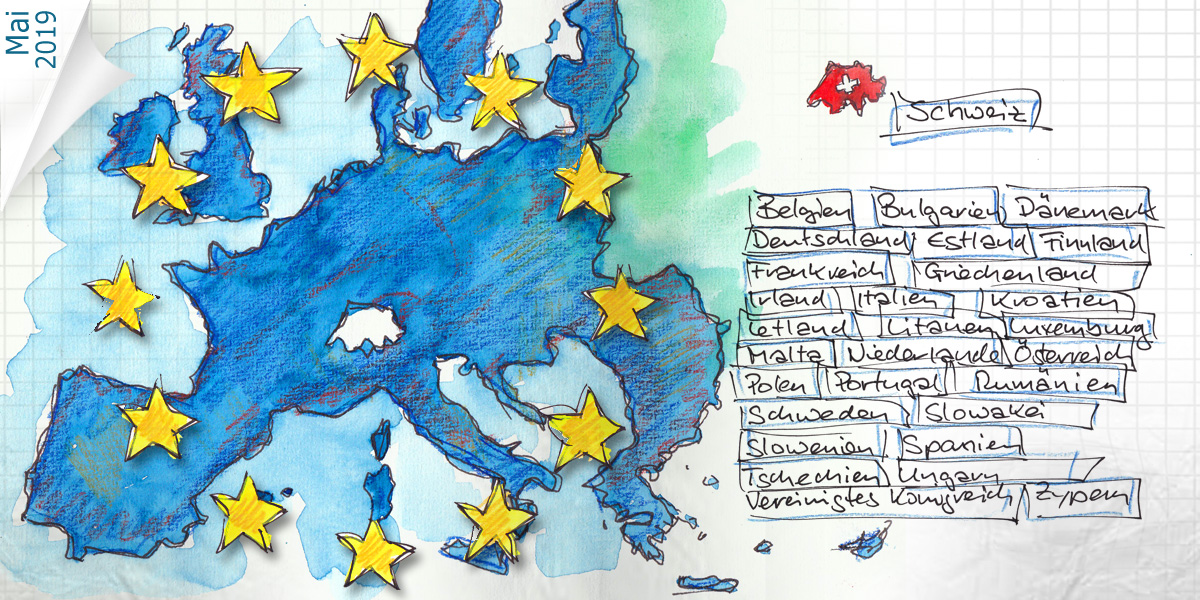 Mai
2019
Schweiz
Belgien Bulgarien Dänemark
Deutschland Estland Finnland
Frankreich Griechenland
Irland Italien Kroatien
Letland Litauen Luxemburg
Malta Niederlande Österreich
Polen Portugal Rumänien
Schweden Slowakei
Slowenien Spanien
Tschechien Ungarn
Vereinigtes Königreich Zypern